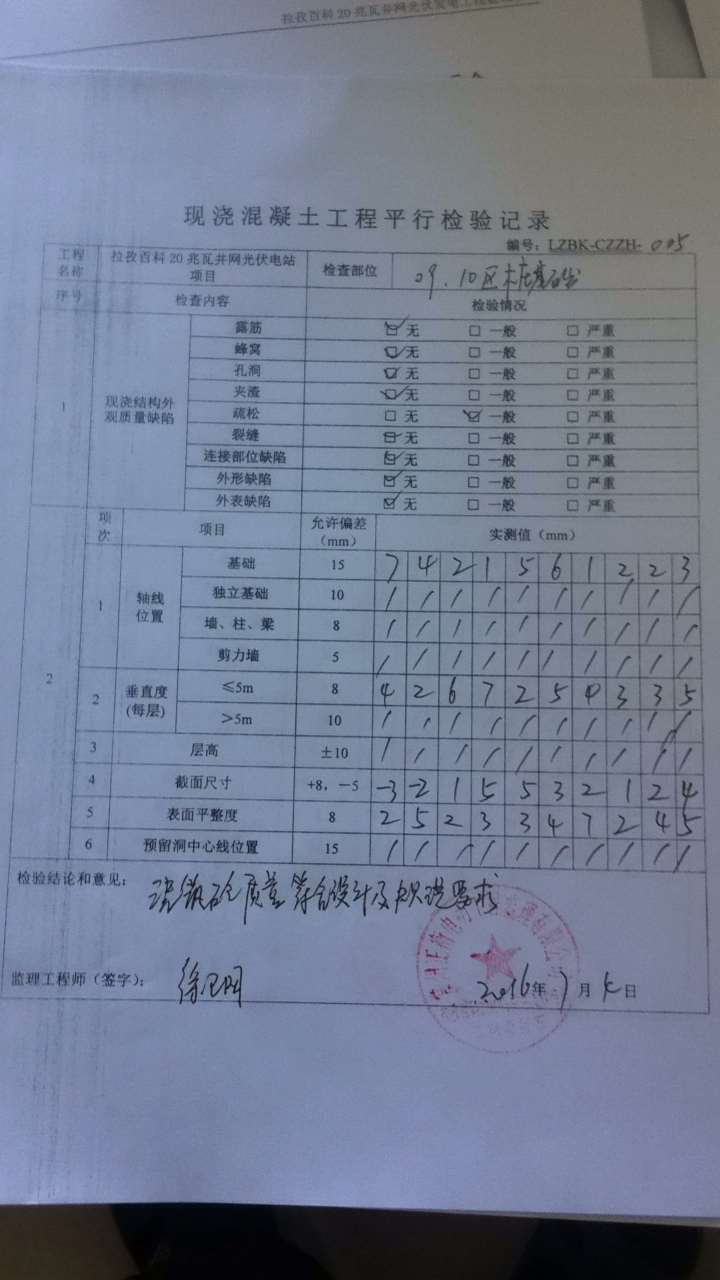 拉孜百科20兆瓦并网光伏发电工程
现浇混凝土工程平行检验记录
编号：LZBK-CZZH-005
工程名称 拉孜百科20兆瓦并网光伏电站项目 检查部位 09.10区桩基础
序号 检查内容 检验情况
1 现浇结构外观质量缺陷
露筋 ☑无 □一般 □严重
蜂窝 ☑无 □一般 □严重
孔洞 ☑无 □一般 □严重
夹渣 ☑无 □一般 □严重
疏松 □无 ☑一般 □严重
裂缝 ☑无 □一般 □严重
连接部位缺陷 ☑无 □一般 □严重
外形缺陷 ☑无 □一般 □严重
外表缺陷 ☑无 □一般 □严重
2 项次 项目 允许偏差（mm） 实测值（mm）
1 轴线位置 基础 15 7 4 2 1 5 6 1 2 2 3
独立基础 10 / / / / / / / / / /
墙、柱、梁 8 / / / / / / / / / /
剪力墙 5 / / / / / / / / / /
2 垂直度(每层) ≤5m 8 4 2 6 7 2 5 3 3 5
>5m 10 / / / / / / / / / /
3 层高 ±10 / / / / / / / / / /
4 截面尺寸 +8，-5 -3 -2 1 5 5 3 2 1 2 4
5 表面平整度 8 2 5 2 3 3 4 7 2 4 5
6 预留洞中心线位置 15 / / / / / / / / / /
检验结论和意见：
现浇砼质量符合设计及规范要求
监理工程师（签字）： 2016年7月 日